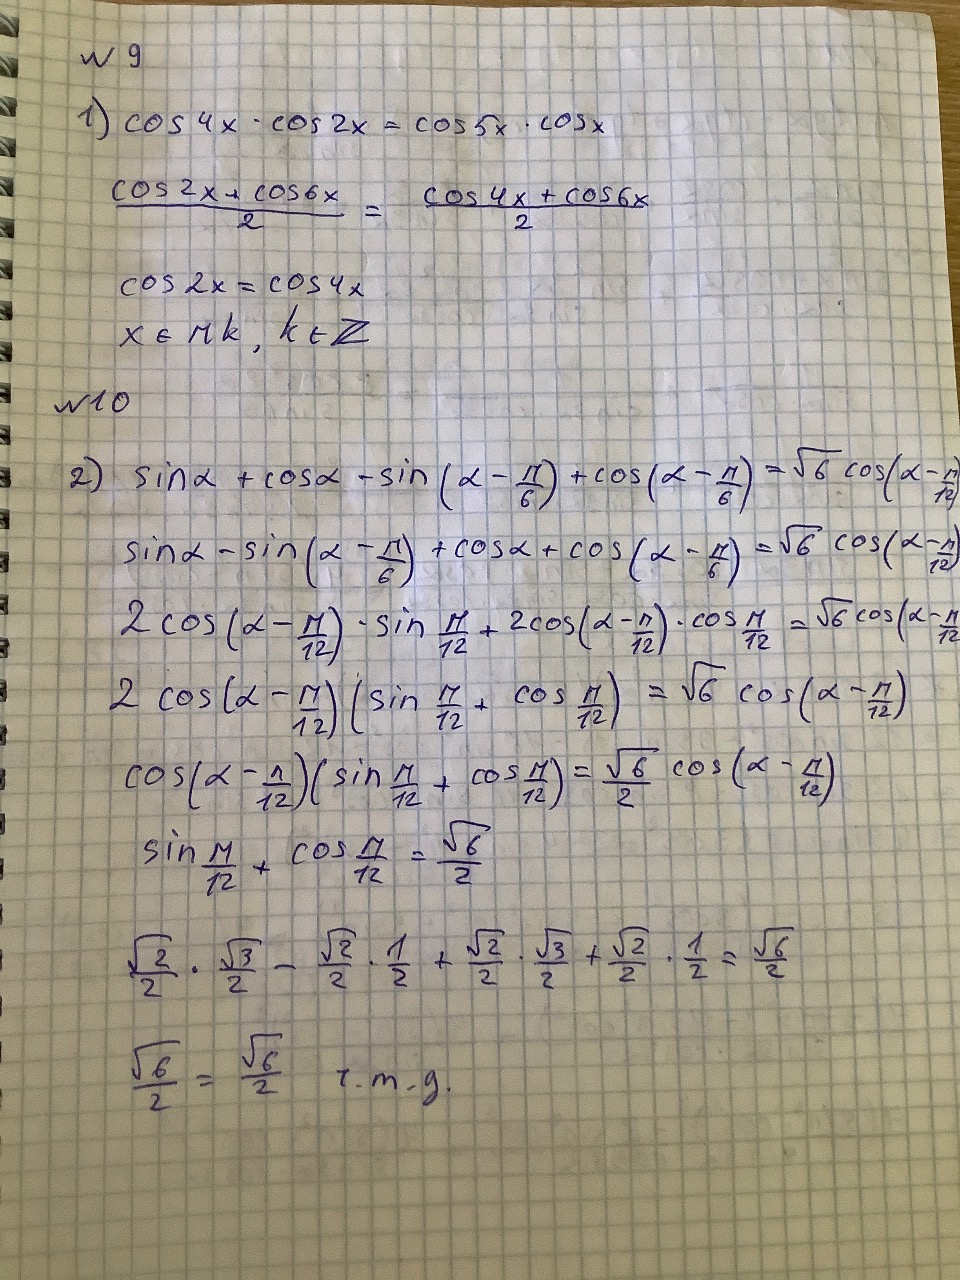 № 9
1) cos 4x · cos 2x = cos 5x · cos x
(cos 2x + cos 6x)/2 = (cos 4x + cos 6x)/2
cos 2x = cos 4x
x ∈ πk, k ∈ ℤ
№ 10
2) sin α + cos α - sin(α - π/6) + cos(α - π/6) = √6 cos(α - π/12)
sin α - sin(α - π/6) + cos α + cos(α - π/6) = √6 cos(α - π/12)
2 cos(α - π/12) · sin π/12 + 2cos(α - π/12) · cos π/12 = √6 cos(α - π/12
2 cos(α - π/12)(sin π/12 + cos π/12) = √6 cos(α - π/12)
cos(α - π/12)(sin π/12 + cos π/12) = √6/2 cos(α - π/12)
sin π/12 + cos π/12 = √6/2
√2/2 · √3/2 - √2/2 · 1/2 + √2/2 · √3/2 + √2/2 · 1/2 = √6/2
√6/2 = √6/2 ч.т.д.